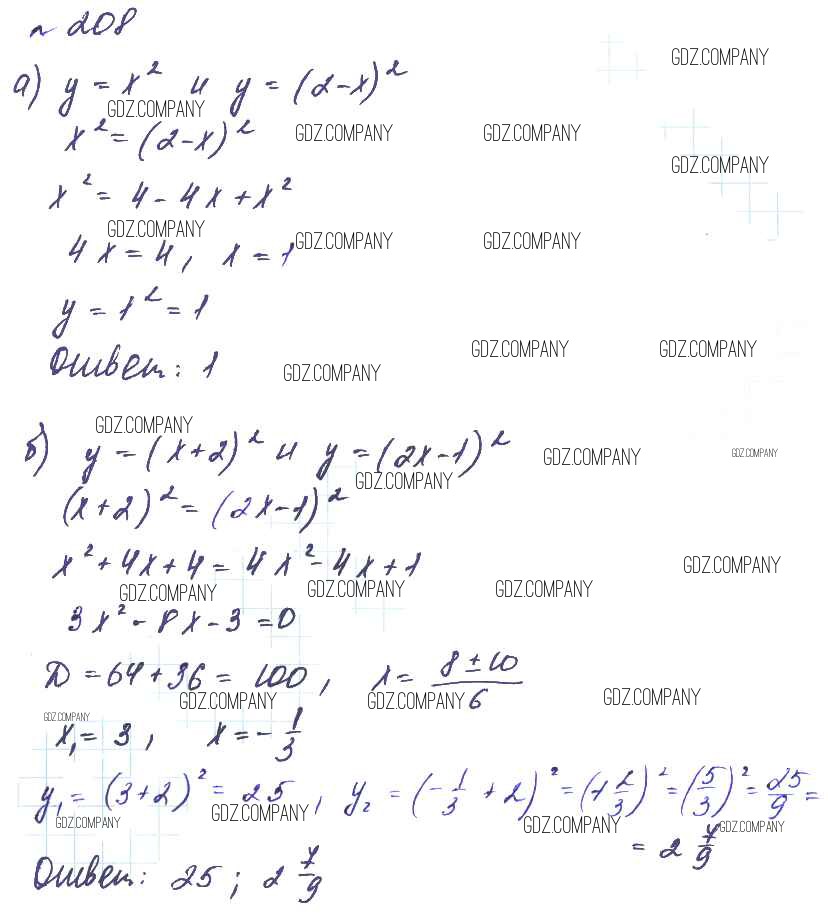 № 208
GDZ.COMPANY
а) y = x² и y = (2-x)²
GDZ.COMPANY
x² = (2-x)² GDZ.COMPANY GDZ.COMPANY
GDZ.COMPANY
x² = 4 - 4x + x²
GDZ.COMPANY
4x = 4, x = 1 GDZ.COMPANY GDZ.COMPANY
y = 1² = 1
GDZ.COMPANY GDZ.COMPANY
Ответ: 1 GDZ.COMPANY
GDZ.COMPANY
б) y = (x+2)² и y = (2x-1)² GDZ.COMPANY GDZ.COMPANY
GDZ.COMPANY
(x+2)² = (2x-1)²
x² + 4x + 4 = 4x² - 4x + 1 GDZ.COMPANY
GDZ.COMPANY GDZ.COMPANY GDZ.COMPANY
3x² - 8x - 3 = 0
D = 64 + 36 = 100, x = (8 ± 10)/6
GDZ.COMPANY GDZ.COMPANY GDZ.COMPANY
GDZ.COMPANY
x₁ = 3, x = -1/3
y₁ = (3+2)² = 25, y₂ = (-1/3 + 2)² = (1 2/3)² = (5/3)² = 25/9 =
GDZ.COMPANY GDZ.COMPANY GDZ.COMPANY GDZ.COMPANY
= 2 7/9
Ответ: 25; 2 7/9